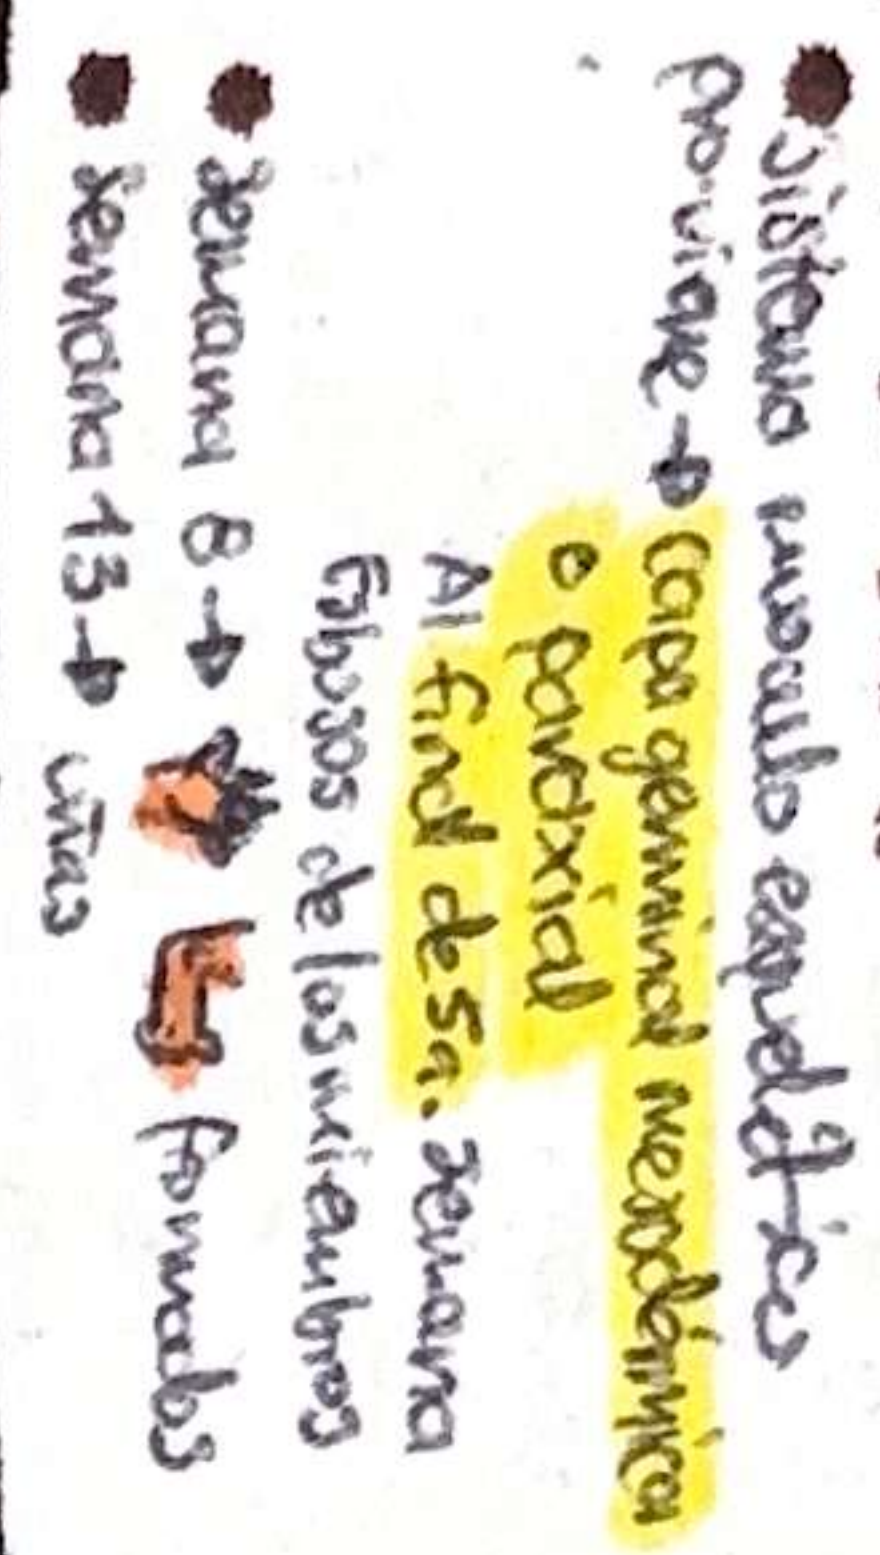 Sistema musculo esquelético
proviene → capa germinal mesodérmica
o paraxial
Al final de 5a. semana
Esbozos de los miembros
semana 8 → formados
semana 13 → uñas